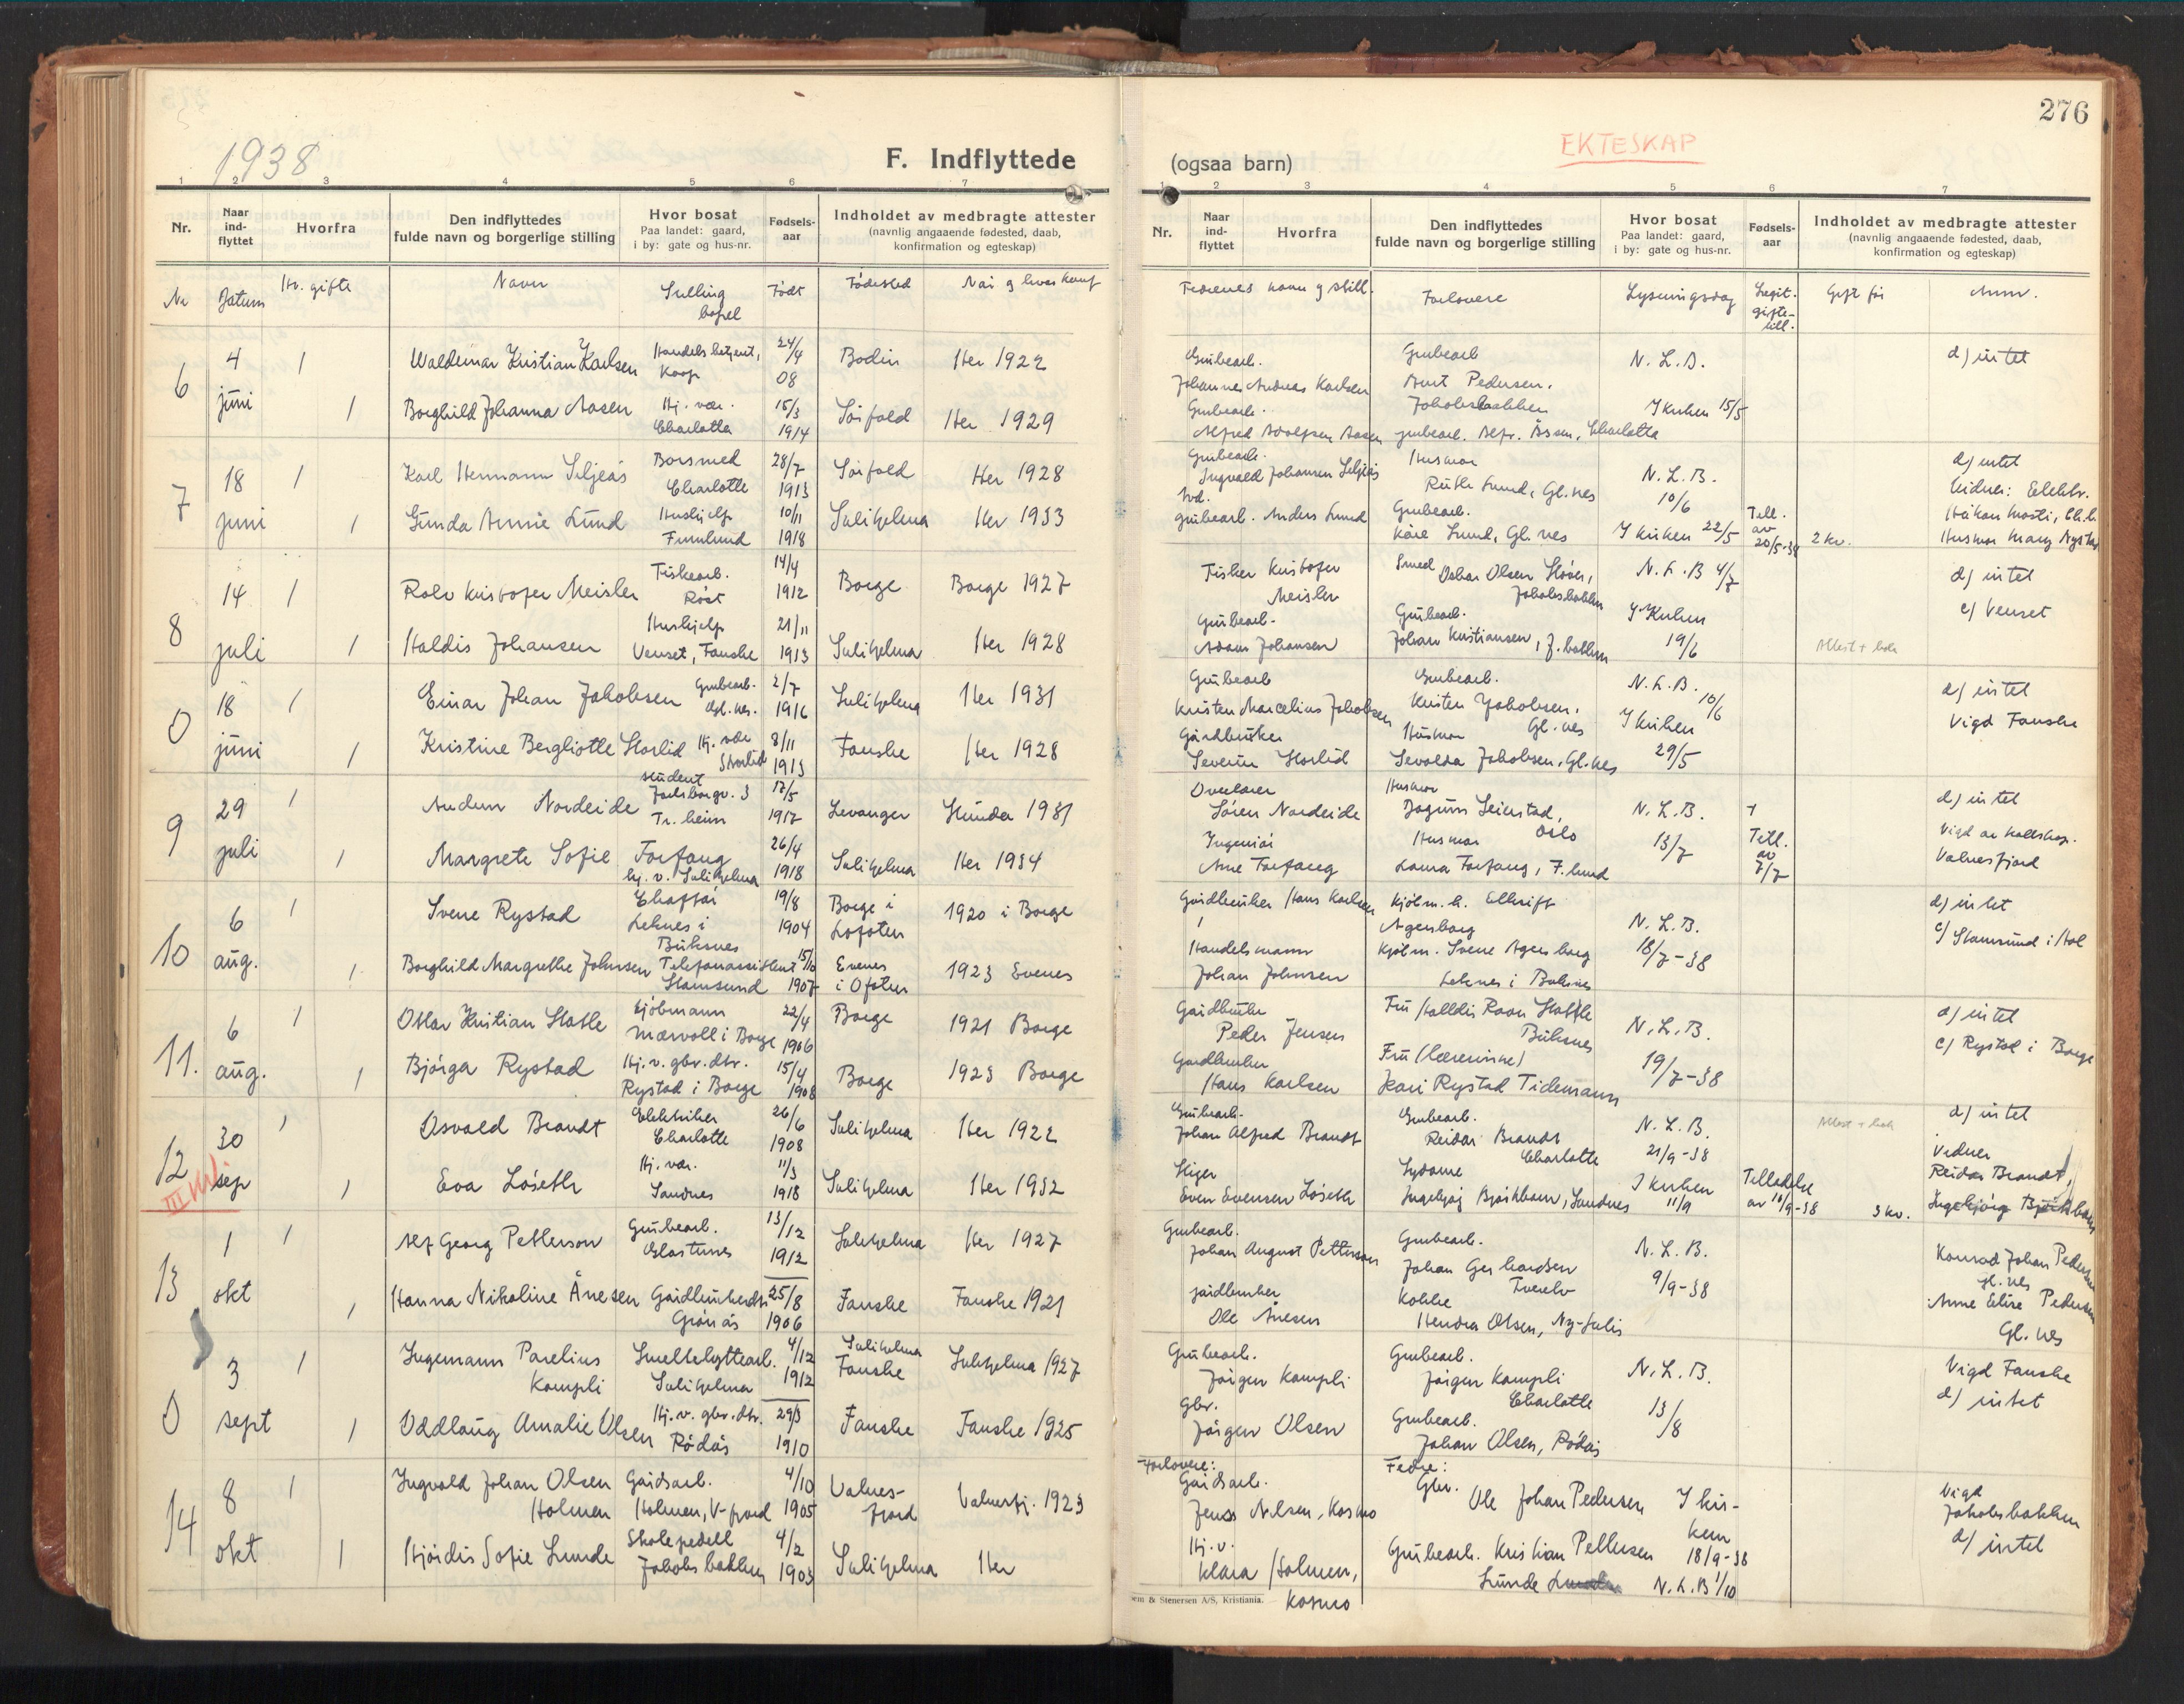 276
EKTESKAP
1938
F. Indflyttede
(ogsaa barn)
1 2 3 4 5 6 7
Nr.
Naar ind-flyttet
Hvorfra
Den indflyttedes fulde navn og borgerlige stilling
Hvor bosat
Paa landet: gaard, i by: gate og hus-nr.
Fødsels-aar
Indholdet av medbragte attester
(navnlig angaaende fødested, daab, konfirmation og egteskap)
Nr Datum Hv. gifte Navn Stilling bopel Født Fødested
6
4 juni
1 Waldemar Kristian Karlsen Handelsbetjent, Koop 24/4 08 Bodin Her 1922
1 Borghild Johanna Aasen Hj. vær. Charlotta 15/3 1914 Sörfold Her 1929
7
18 juni
1 Karl Hermann Seljeås Charlotte 28/7 1913 Sörfold Her 1928
1 Gunda Annie Lund Hushjelp Furulund 10/11 1918 Sulitjelma Her 1933
8
14 juli
1 Rolv Kristofer Meisler Fiskearb. Röst 14/4 1912 Borge Borge 1927
1 Haldis Johansen Hushjelp Venset, Fauske 21/11 1913 Sulitjelma Her 1928
0
18 juni
1 Einar Johan Jakobsen Grubearb. Gl. nes. 2/7 1916 Sulitjelma Her 1931
1 Kristine Bergliotte Storlid Hj. vær Storlid 8/11 1913 Fauske Her 1928
9
29 juli
1 Audun Nordeide student Tr. heim 17/5 1917 Levanger 1931
1 Margrete Sofie Torfang hj. v. Sulitjelma 26/4 1918 Sulitjelma Her 1934
10
6 aug.
1 Sverre Rystad Leknes i Buksnes 19/8 1904 Borge i Lofoten 1920 i Borge
1 Borghild Margrethe Johnsen Telefonassistent Stamsund 15/10 1907 Evenes i Ofoten 1923 Evenes
11.
6 aug.
1 Ottar Kristian Statle Kjöbmann Mærvoll i Borge 22/4 1906 Borge 1921 Borge
1 Bjórga Rystad Hj. v. gbr. dtr. Rystad i Borge 15/4 1908 Borge 1923 Borge
12
30 sep
1 Osvald Brandt Elektriker Charlotte 26/6 1908 Sulitjelma Her 1922
1 Eva Löseth Hj. vær. Sandnes 11/3 1918 Sulitjelma Her 1932
13
1 okt
1 Alf Georg Petterson Grubearb. 13/12 1912 Sulitjelma Her 1927
1 Hanna Nikoline Ånesen Grönås 25/8 1906 Fauske Fauske 1921
0
3 sept
1 Ingemann Parelius Kampli Smeltehyttearb. Sulitjelma 4/12 1912 Sulitjelma Fauske Sulitjelma 1927
1 Oddlaug Amalie Olsen Hj. v. gbr. dtr. Rödås 29/3 1910 Fauske Fauske 1925
14
8 okt
1 Ingvald Johan Olsen Holmen Gårdsarb. Holmen, V-fjord 4/10 1905 Valnesfjord Valnesfj. 1923
1 Hjördis Sofie Lunde Skolepedell Jakobsbakken 4/2 1903 Sulitjelma Her
Fedrenes navn og still. Forlovere Lysningsdag Gift för Anm.
Grubearb. Johannes Andreas Karlsen Grubearb. Pedersen, Jakobsbakken N. L. B. d) intet
Grubearb. Alfred Adolfsen Aasen grubearb. Alfr. Åsen, Charlotta I kirken 15/5
Grubearb. Ingvald Johansen Seljeås Husmor Ruth Lund, Gl. nes N. L. B. 10/6 d) intet
grubearb. Anders Lund Grubearb. Kåre Lund, Gl. nes I kirken 22/5 Till. av 20/5-38 2 kr.
Fisker Kristofer Meisler Smed Oskar Olsen Jakobsbakken N. L. B 4/7 d) intet
Grubearb. Adam Johansen Grubearb. Johan Kristiansen, J. bakken I Kirken 19/6 Attest + bok c) Venset
Grubearb Kristen Marcelius Jakobsen Grubearb. Kristen Jakobsen, Gl. nes N. L. B. 10/6 d) intet
Gårdbruker Severin Storlid Husmor Sevolda Jakobsen, Gl. nes I kirken 29/5 Vigd Fauske
Overlærer Sören Nordeide Husmor Jogunn Seierstad, Oslo N. L. B. 13/7 d) intet
Ingeniör Arne Torfang Husmor Laura Torfang, F. lund Till. av 7/7 Valnesfjord
Gårdbruker Hans Karlsen Agersborg N. L. B. 18/7-38 d) intet
Handelsmann Johan Johnsen Kjöbm. Sverre Agersborg Leknes i Buksnes c) Stamsund i Hol
Gårdbruker Peder Jensen Buksnes N. L. B. 19/7-38 d) intet
Gardbruker Hans Karlsen Fru (lærerinne) Kari Rystad Tidemann c) Rystad i Borge
Grubearb. Johan Alfred Brandt Grubearb. Reidar Brandt Charlotte N. L. B. 21/9-38 Attest + bok d) intet
Stiger Even Evensen Löseth Sydame Sandnes I kirken 11/9 Tilledelse av 10/9-38 3 kr. Vidner Reidar Brandt,
Grubearb. Johan August Petterson Grubearb. Johan Gerhardsen N. L. B. 9/9-38 Konrad Johan Pedersen Gl. nes
gårdbruker Ole Ånesen Kokke Hendra Olsen, Ny-Sulis Anne Elise Pedersen Gl. nes
Grubearb. Jörgen Kampli Grubearb. Jörgen Kampli Charlotte N. L. B. 13/8 Vigd Fauske
Gbr. Jörgen Olsen Grubearb. Johan Olsen, Rödås d) intet
Forlovere: Fedre:
Gårdsarb. Jens Nilsen, Kosmo Gbr. Ole Johan Pedersen I kirken 18/9-38 Vigd Jakobsbakken
Hj. v. Klara Holmen, Kosmo Grubearb. Kristian Pettersen Lunde N. L. B 1/10 d) intet
& Stenersen A/S, Kristiania.